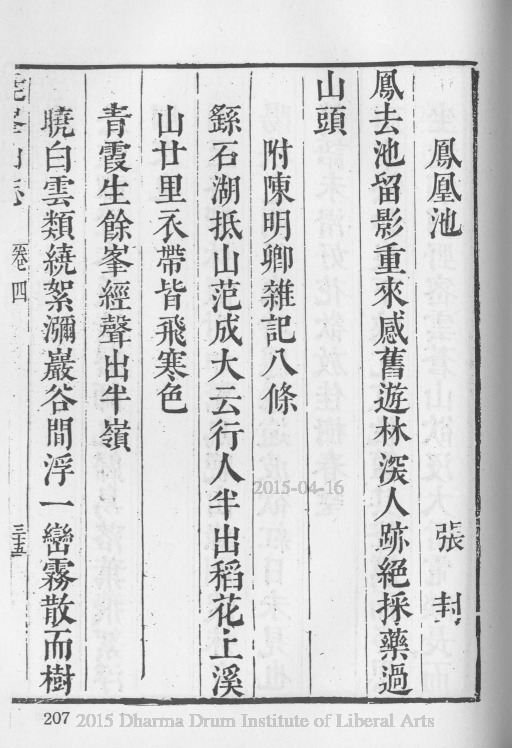 鳳凰池 張封
鳳去池留影重來感舊遊林深人跡絕採藥過
山頭
附陳明卿雜記八條
繇石湖抵山范成大云行人半出稻花上溪
山廿里衣帶皆飛寒色
青霞生餘峯經聲出半嶺
曉白雲類繞絮瀰巖谷間浮一巒霧散而樹
卷四
三十五
2015-04-16
207 2015 Dharma Drum Institute of Liberal Arts